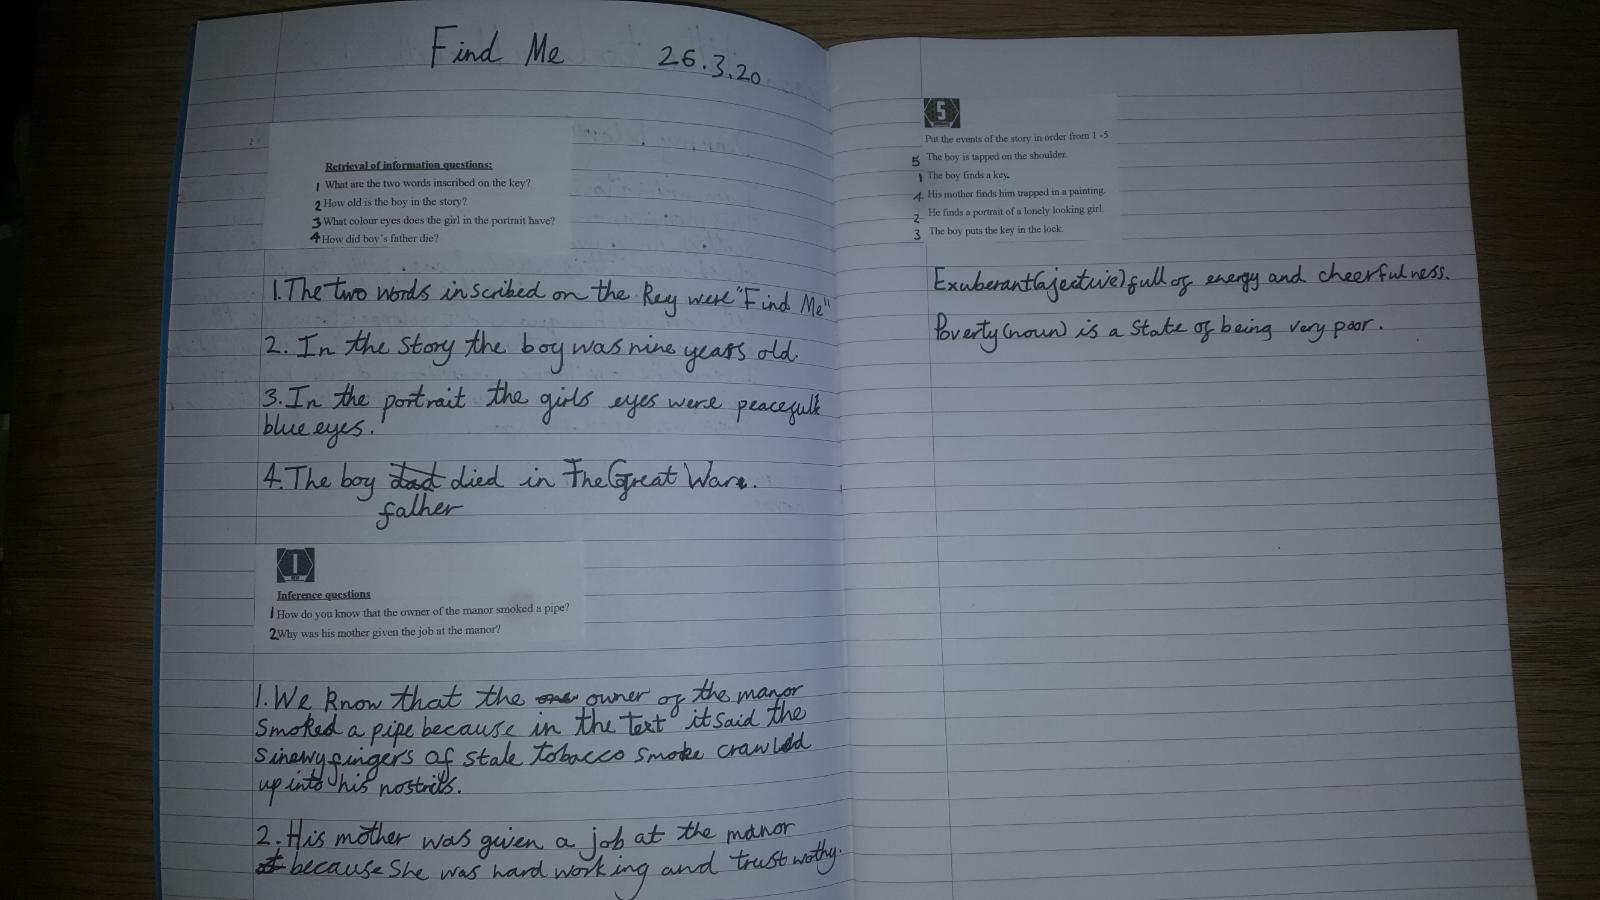 Find Me 26.3.20
Retrieval of information questions:
1 What are the two words inscribed on the key?
2 How old is the boy in the story?
3 What colour eyes does the girl in the portrait have?
4 How did boy's father die?
1. The two words inscribed on the key were "Find Me"
2. In the story the boy was nine years old.
3. In the portrait the girls eyes were peacefull
blue eyes.
4. The boy dad died in The Great War.
father
1
Inference questions
1 How do you know that the owner of the manor smoked a pipe?
2 Why was his mother given the job at the manor?
1. We know that the owner of the manor
smoked a pipe because in the text it said the
sinewy fingers of stale tobacco smoke crawled
up into his nostrils.
2. His mother was given a job at the manor
because She was hard working and trust wothy.
5
Put the events of the story in order from 1 -5
5 The boy is tapped on the shoulder.
1 The boy finds a key.
4 His mother finds him trapped in a painting.
2 He finds a portrait of a lonely looking girl.
3 The boy puts the key in the lock.
Exuberant(ajective) full of energy and cheerfulness.
Poverty(noun) is a state of being very poor.